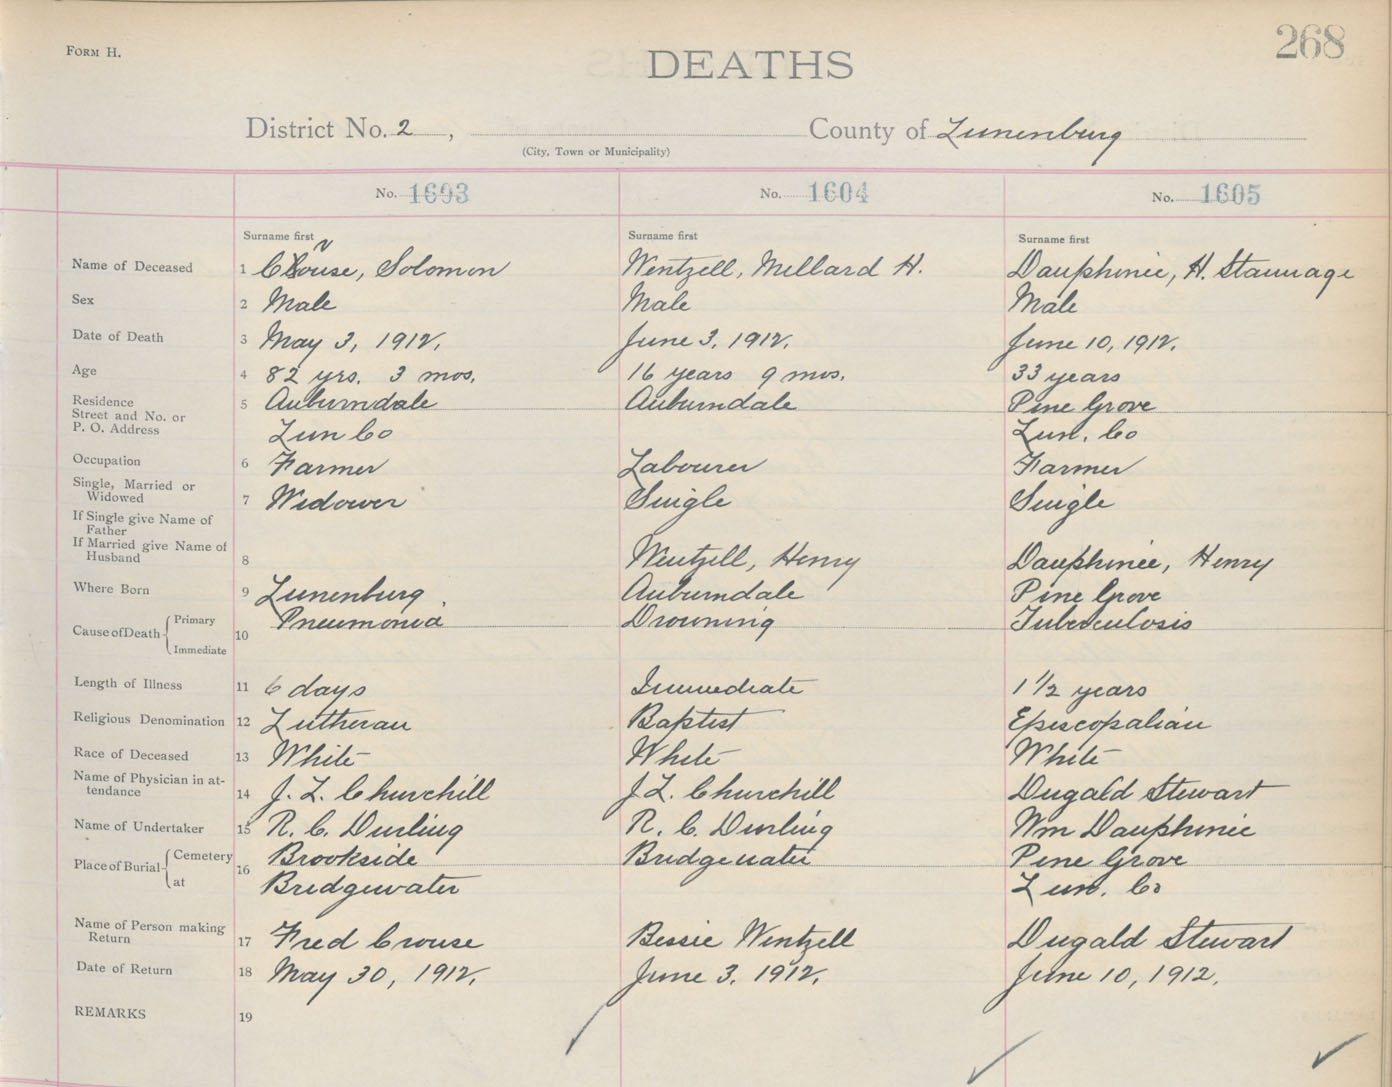 268
FORM H.
DEATHS
District No. 2, County of Lunenburg
(City, Town or Municipality)
No. 1603 No. 1604 No. 1605
Surname first Surname first Surname first
Name of Deceased 1 Crouse, Solomon Wentzell, Millard H. Dauphinie, H. Stannage
Sex 2 Male Male Male
Date of Death 3 May 3, 1912. June 3, 1912. June 10, 1912.
Age 4 82 yrs. 3 mos. 16 years 9 mos. 33 years
Residence 5 Auburndale Auburndale Pine Grove
Street and No. or
P. O. Address Lun Co Lun. Co
Occupation 6 Farmer Labourer Farmer
Single, Married or
Widowed 7 Widower Single Single
If Single give Name of
Father
If Married give Name of
Husband 8 Wentzell, Henry Dauphinie, Henry
Where Born 9 Lunenburg Auburndale Pine Grove
Cause of Death Primary 10 Pneumonia Drowning Tuberculosis
Immediate
Length of Illness 11 6 days Immediate 1 1/2 years
Religious Denomination 12 Lutheran Baptist Episcopalian
Race of Deceased 13 White White White
Name of Physician in at-
tendance 14 J. L. Churchill J L. Churchill Dugald Stewart
Name of Undertaker 15 R. C. Durling R. C. Durling Wm Dauphinie
Place of Burial Cemetery 16 Brookside Bridgewater Pine Grove
at Bridgewater Lun. Co
Name of Person making
Return 17 Fred Crouse Bessie Wentzell Dugald Stewart
Date of Return 18 May 30, 1912. June 3, 1912. June 10, 1912.
REMARKS 19